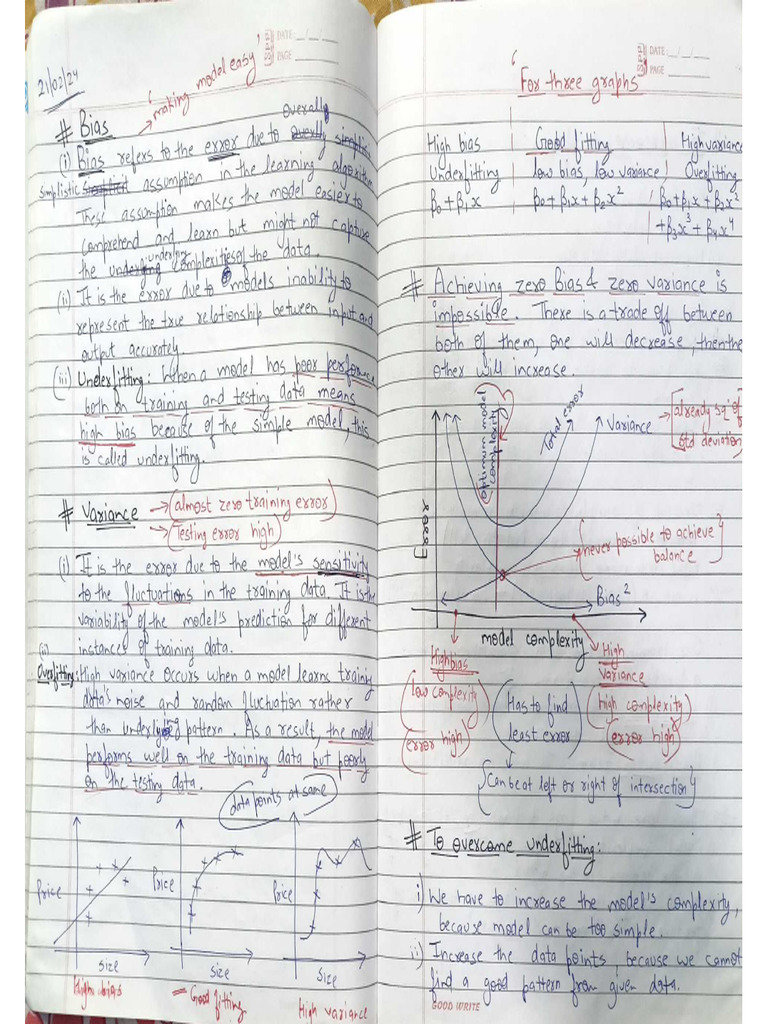 DATE: __/__/__
PAGE
21/02/24
'making model easy'
# Bias
Overally
(i) Bias refers to the error due to overlly simplistic
simplistic assumption in the learning algorithm
These assumption makes the model easier to
comprehend and learn but might not capture
underlying
the underlying complexities of the data.
(ii) It is the error due to models inability to
represent the true relationship between input and
output accurately.
(iii) Underfitting: When a model has poor performance
both on training and testing data means
high bias because of the simple model, this
is called underfitting.
# Variance → (almost zero training error)
→ (Testing error high)
(i) It is the error due to the model's sensitivity
to the fluctuations in the training data. It is the
variability of the model's prediction for different
instances of training data.
(ii)
Overfitting: High variance occurs when a model learns training
data's noise and random fluctuation rather
than underlying pattern. As a result, the model
performs well on the training data but poorly
on the testing data.
data points at same
Price
Price
Price
size
size
size
High bias
= Good fitting
High variance
DATE: __/__/__
PAGE
'For three graphs
High bias | Good fitting | High variance
Underfitting | low bias, low variance | Overfitting
β0+β1x | β0+β1x+β2x² | β0+β1x+β2x²
+β3x³+β4x⁴
# Achieving zero Bias & zero variance is
impossible. There is a trade off between
both of them, one will decrease, then the
other will increase.
Optimum model
complexity
Total error
Variance → [already sq' of
std deviation]
Error
never possible to achieve
balance
Bias²
model complexity
High bias
High
Variance
(low complexity)
(Has to find
least error)
(high complexity)
(error high)
(error high)
{Can be at left or right of intersection}
# To overcome underfitting:
i) We have to increase the model's complexity,
because model can be too simple.
ii) Increase the data points because we cannot
find a good pattern from given data.
GOOD WRITE